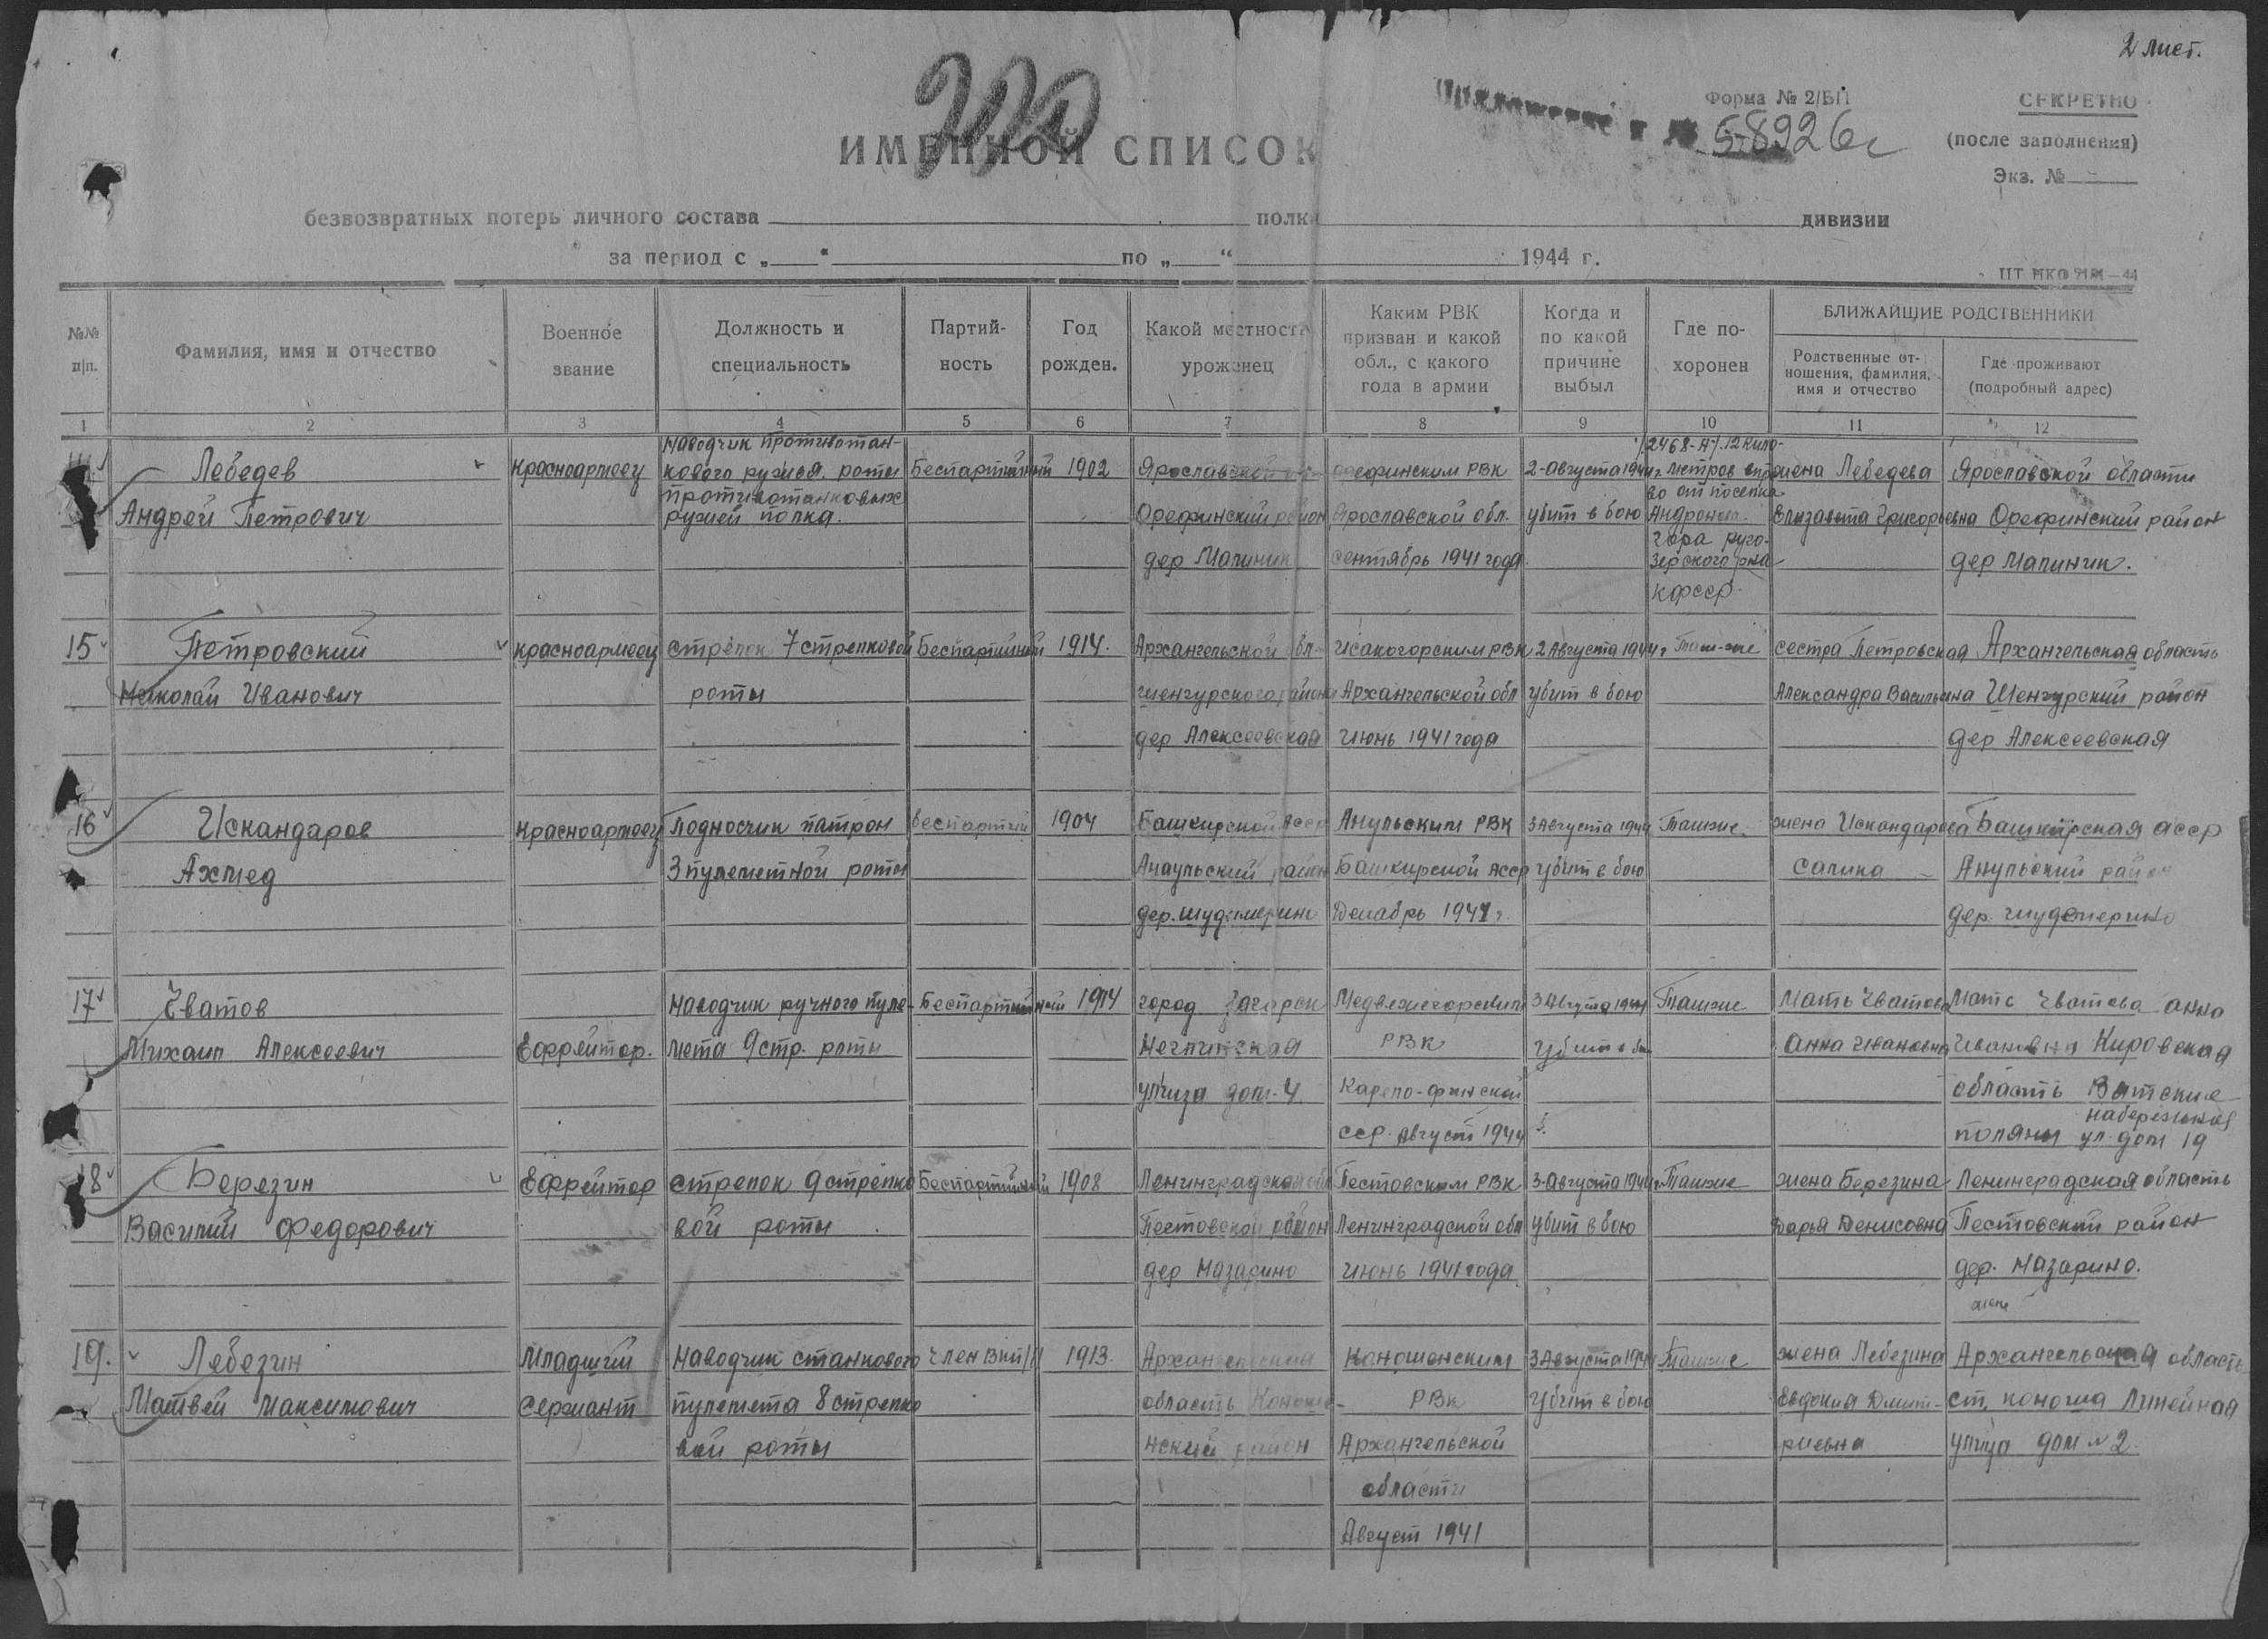 2 лист.
Форма № 2/БП
СЕКРЕТНО
58926с
(после заполнения)
Экз. №
ИМЕННОЙ СПИСОК
безвозвратных потерь личного состава полка дивизии
за период с „ “ по „ “ 1944 г.
№№ п|п.
Фамилия, имя и отчество
Военное звание
Должность и специальность
Партийность
Год рожден.
Какой местности уроженец
Каким РВК призван и какой обл., с какого года в армии
Когда и по какой причине выбыл
Где похоронен
БЛИЖАЙШИЕ РОДСТВЕННИКИ
Родственные отношения, фамилия, имя и отчество
Где проживают (подробный адрес)
1 2 3 4 5 6 7 8 9 10 11 12
Лебедев
Андрей Петрович
Красноармеец
Наводчик противотан-
кового ружья роты
противотанковых
ружей полка.
Беспартийный
1902
Ярославской
Орефинский район
дер Малинин
орефинским РВК
Ярославской обл.
сентябрь 1941 года
2-Августа 1944г.
убит в бою
/2468-А/. 12 кило-
метров
во от поселка
Андронова
гора руго-
зерского р-на
КФССР.
жена Лебедева
Елизавета Григорьевна
Ярославской области
Орефинский район
дер Малинин.
15
Петровский
Николай Иванович
красноармеец
стрелок 7 стрелковой
роты
Беспартийный
1914.
Архангельской обл-
шенгурского района
дер Алексеевская
Исакогорским РВК
Архангельской обл
Июнь 1941 года
2 Августа 1944г
убит в бою
Там-же
сестра Петровская
Александра Васильевна
Архангельская область
Шенгурский район
дер Алексеевская
16
Искандаров
Ахмед
красноармеец
Подносчик патрон
3 пулеметной роты
беспартий
1904
Башкирской АССР
Анаульский район
Анульским РВК
Башкирской АССР
Декабрь 1941г.
3 Августа 1944
Убит в бою
Там же.
жена Искандарова
Салика
Башкирская АССР
Анульский район
17
Чватов
Михаил Алексеевич
Ефрейтор.
Наводчик ручного пуле-
мета 9 стр. роты
Беспартийный
1914
город Загорск
улица дом-4.
Медвежегорским
РВК
Карело-финской
сср. Август 1944
3 Августа 1944
Убит в бою
Там же
Мать Чватова
Анна Ивановна
Мать Чватова Анна
Ивановна Кировская
область Вятские
набережная
поляны ул. дом 19
18
Березин
Василий Федорович
Ефрейтор
стрелок 9 стрелко
вой роты
Беспартийный
1908
Ленинградская обл
Пестовской район
дер Назарино
Пестовским РВК
Ленинградской обл
Июнь 1941 года
3-Августа 1944г.
убит в бою
Там же
жена Березина
Дарья Денисовна
Ленинградская область
Пестовский район
дер. Назарино.
19.
Лебезин
Матвей Максимович
Младший
сержант
Наводчик станкового
пулемета 8 стрелко
вой роты
член ВКП/б/
1913.
Архангельская
область Коноше-
нский район
Коношенским
РВК
Архангельской
области
Август 1941
3 Августа 1944
Убит в бою
Там же
жена Лебезина
Евдокия Дмит-
риевна
Архангельская область
ст. коноша Линейная
улица дом №2.